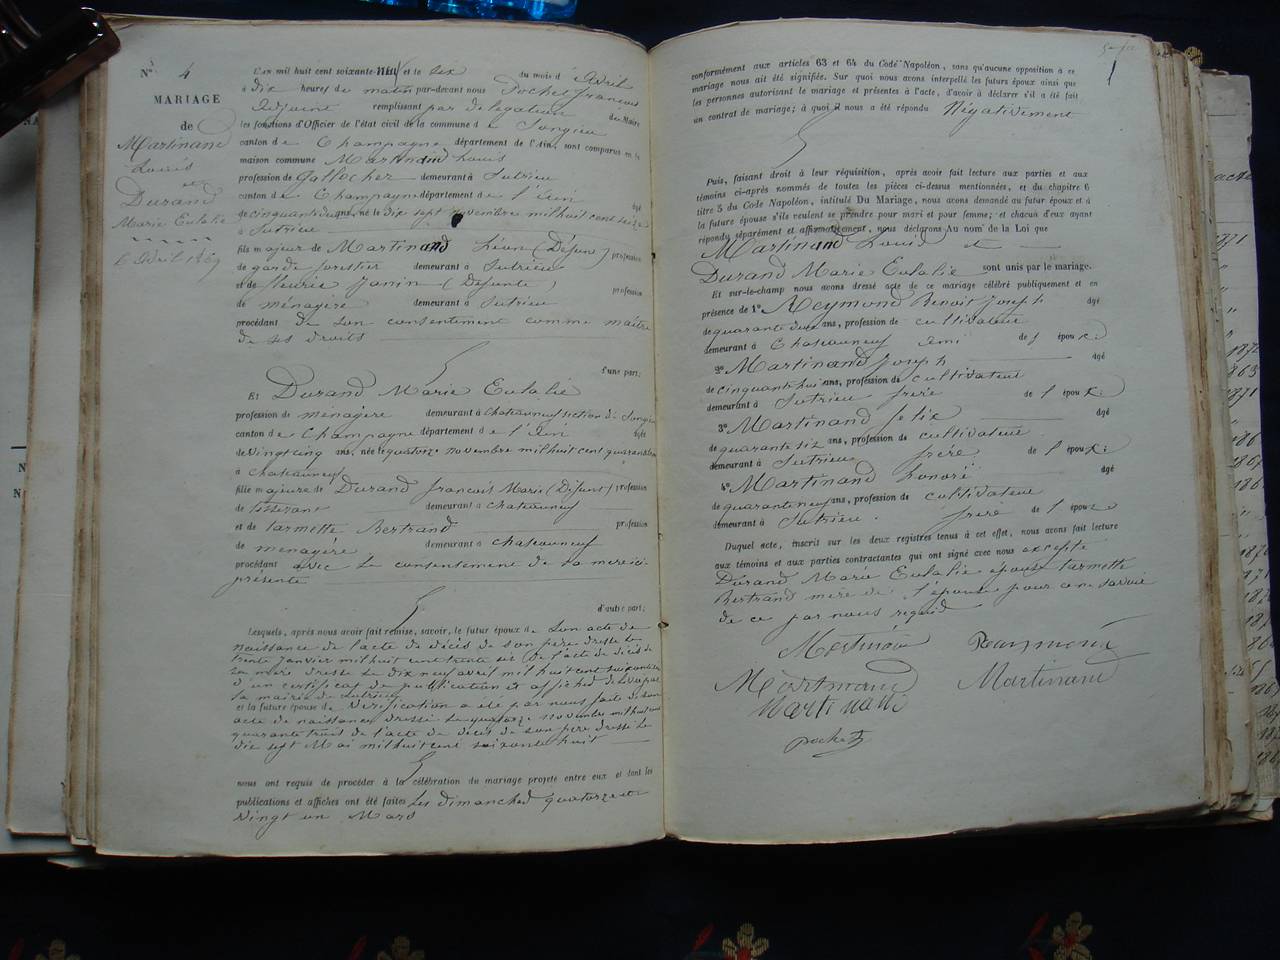 N° 4
MARIAGE
de
Martinand
Louis
et
Durand
Marie Eulalie
6 Avril 1869
L'an mil huit cent soixante-neuf et le six du mois d'Avril
à dix heures du matin par-devant nous Pochet François
Adjoint remplissant par délégation du Maire
les fonctions d'Officier de l'état civil de la commune de Songieu
canton de Champagne département de l'Ain, sont comparus en la
maison commune Martinand Louis
profession de Galocher demeurant à Sutrieu
canton de Champagne département de l'Ain âgé
de cinquante deux ans, né le dix sept novembre mil huit cent seize
à Sutrieu
fils majeur de Martinand (Défunt) profession
de garde forestier demeurant à Sutrieu
et de fleurie Janin (Défunte) profession
de ménagère demeurant à Sutrieu
procédant de son consentement comme maître
de ses droits
d'une part;
Et Durand Marie Eulalie
profession de ménagère demeurant à Chateauneuf section de Songieu
canton de Champagne département de l'Ain âgée
de vingt cinq ans, née le quatorze novembre mil huit cent quarante trois
à Chateauneuf
fille majeure de Durand françois Marie (Défunt) profession
de tisserant demeurant à Chateauneuf
et de Carmette Bertrand profession
de ménagère demeurant à Chateauneuf
procédant avec le consentement de sa mère ici
présente
d'autre part;
Lesquels, après nous avoir fait remise, savoir, le futur époux de son acte de
naissance de l'acte de décès de son père dressé le
trente janvier mil huit cent trente six de l'acte de décès de
sa mère dressé le dix neuf avril mil huit cent soixante
d'un certificat de publication et affiches délivré par
la mairie de Sutrieu
et la future épouse de Vérification a été par nous faite de son
acte de naissance dressé le quatorze novembre mil huit cent
quarante trois de l'acte de décès de son père dressé le
dix sept Mai mil huit cent soixante huit
nous ont requis de procéder à la célébration du mariage projeté entre eux et dont les
publications et affiches ont été faites les dimanches quatorze et
vingt un Mars
conformément aux articles 63 et 64 du Code Napoléon, sans qu'aucune opposition à ce
mariage nous ait été signifiée. Sur quoi nous avons interpellé les futurs époux ainsi que
les personnes autorisant le mariage et présentes à l'acte, d'avoir à déclarer s'il a été fait
un contrat de mariage; à quoi il nous a été répondu Négativement
Puis, faisant droit à leur réquisition, après avoir fait lecture aux parties et aux
témoins ci-après nommés de toutes les pièces ci-dessus mentionnées, et du chapitre 6
titre 5 du Code Napoléon, intitulé Du Mariage, nous avons demandé au futur époux et à
la future épouse s'ils veulent se prendre pour mari et pour femme; et chacun d'eux ayant
répondu séparément et affirmativement, nous déclarons Au nom de la Loi que
Martinand Louis et
Durand Marie Eulalie sont unis par le mariage.
Et sur-le-champ nous avons dressé acte de ce mariage célébré publiquement et en
présence de 1° Reymond Benoit Joseph âgé
de quarante deux ans, profession de cultivateur
demeurant à Chateauneuf ami de l'époux.
2° Martinand Joseph âgé
de cinquante huit ans, profession de cultivateur
demeurant à Sutrieu frère de l'époux.
3° Martinand félix âgé
de quarante six ans, profession de cultivateur
demeurant à Sutrieu frère de l'époux.
4° Martinand honoré âgé
de quarante neuf ans, profession de cultivateur
demeurant à Sutrieu. frère de l'époux
Duquel acte, inscrit sur les deux registres tenus à cet effet, nous avons fait lecture
aux témoins et aux parties contractantes qui ont signé avec nous excepté
Durand Marie Eulalie épouse Carmette
Bertrand mère de l'épouse pour ne savoir
de ce par nous requis
Martinand Raymond
Martinand Martinand
Martinand
pochet